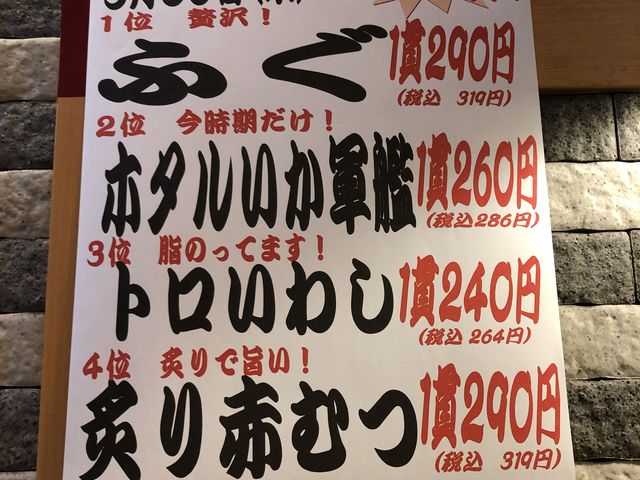 1位 贅沢!
ふぐ 1貫290円
(税込 319円)
2位 今時期だけ!
ホタルいか軍艦 1貫260円
(税込286円)
3位 脂のってます!
トロいわし 1貫240円
(税込 264円)
4位 炙りで旨い!
炙り赤むつ 1貫290円
(税込 319円)